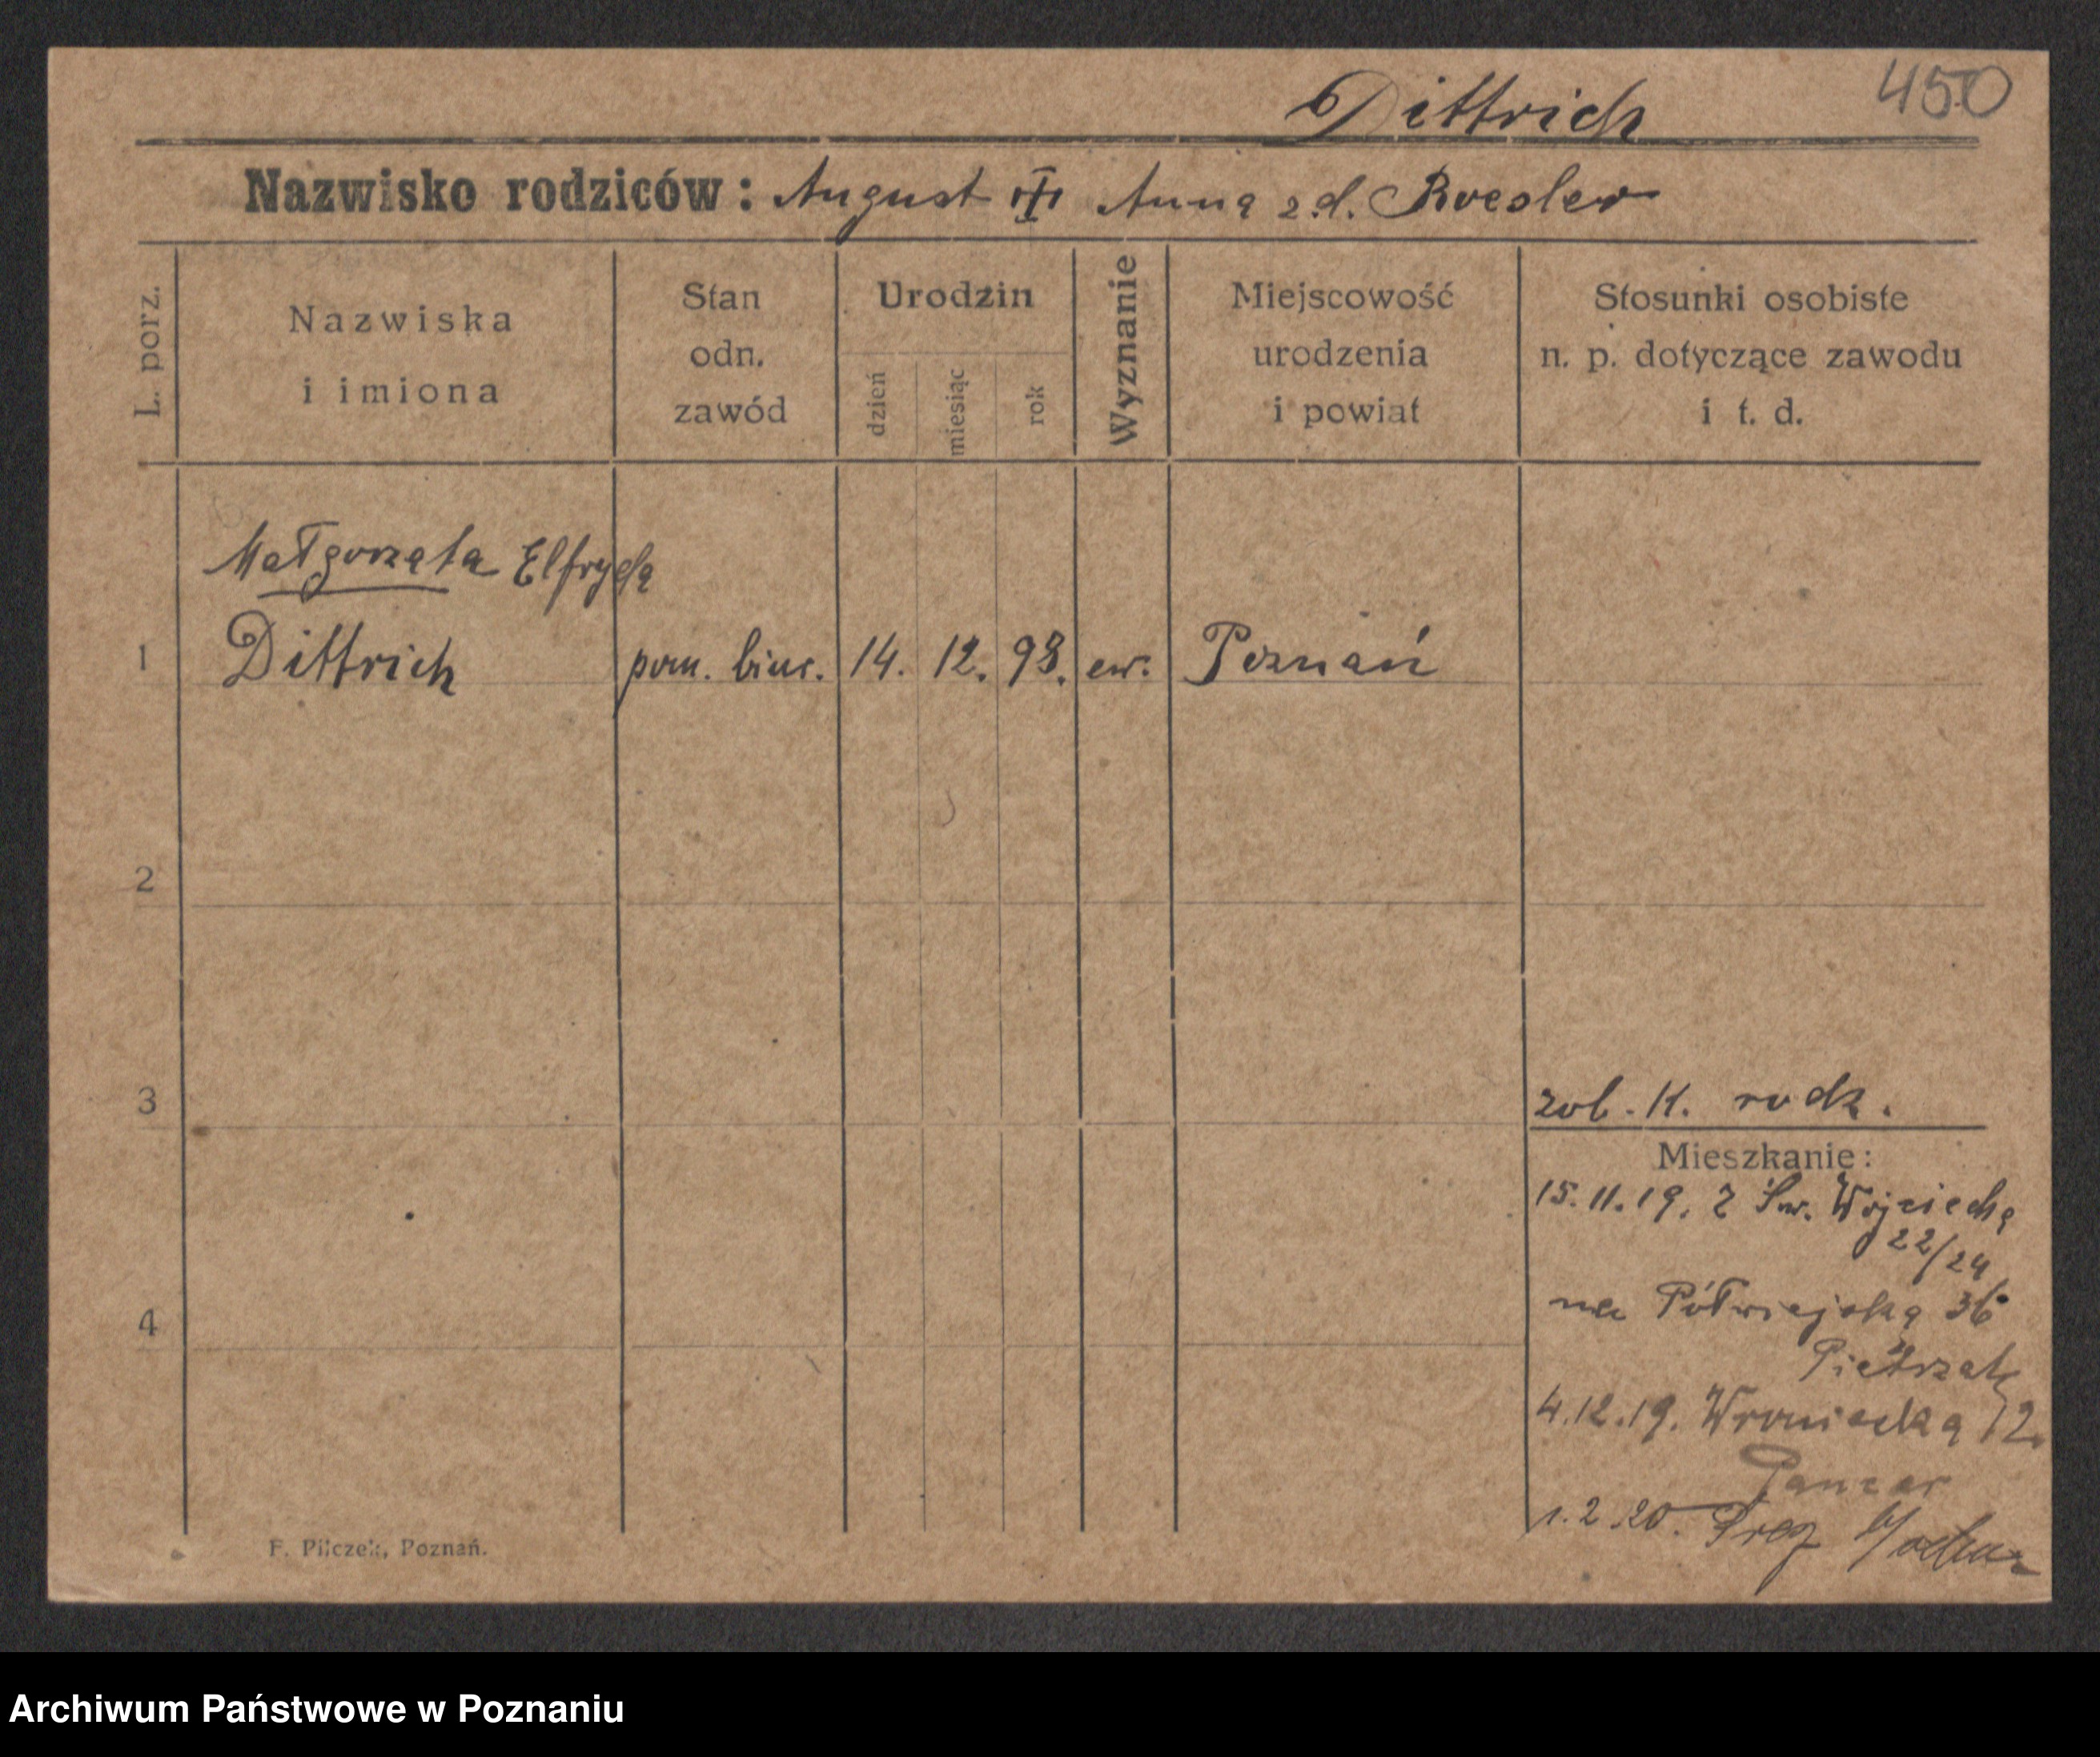 450
Dittrich
Nazwisko rodziców: August Anna z.d. Roesler
L. porz.
Nazwiska
i imiona
Stan
odn.
zawód
Urodzin
dzień
miesiąc
rok
Wyznanie
Miejscowość
urodzenia
i powiat
Stosunki osobiste
n. p. dotyczące zawodu
i t. d.
Małgorzata Elfryda
1 Dittrich pom. biur. 14. 12. 98. ew. Poznań
2
3
zob. K. rodz.
Mieszkanie:
15.11.19. z Św. Wojciecha
22/24
na Półwiejską 36
Pietrzak
4
4.12.19. Wroniecka 12.
Panzer
1.2.20.
F. Pilczek, Poznań.
Archiwum Państwowe w Poznaniu